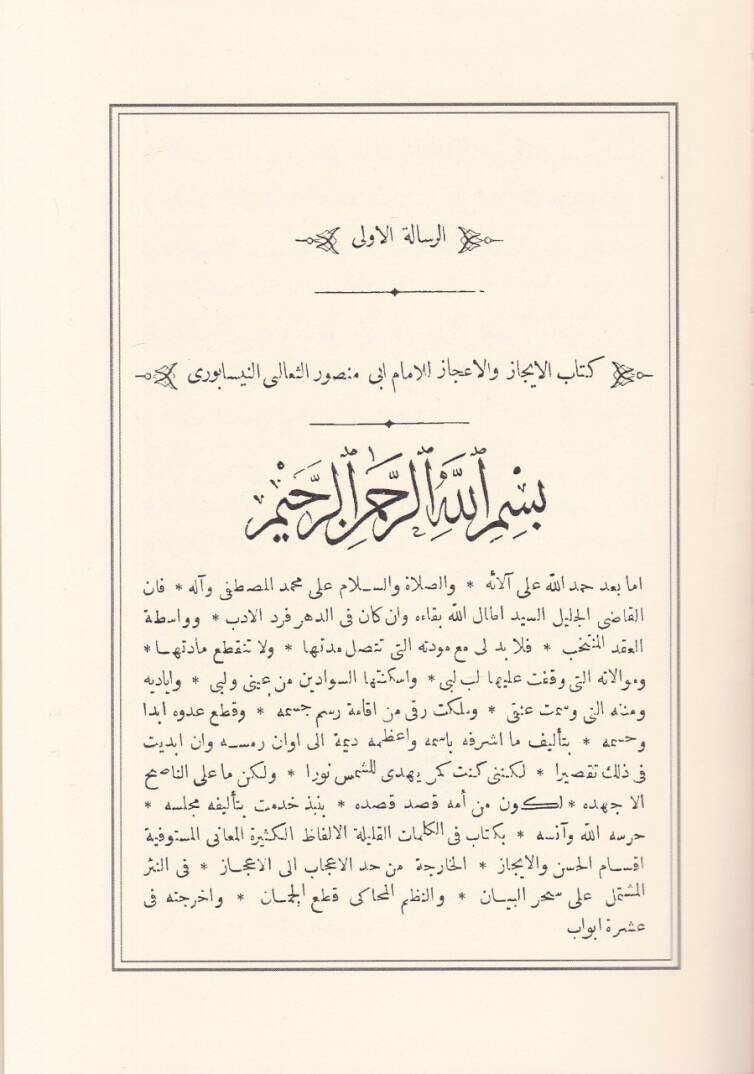 الرسالة الاولى
كتاب الايجاز والاعجاز للامام ابى منصور الثعالبى النيسابورى
بِسْمِ اللَّهِ الرَّحْمَنِ الرَّحِيمِ
اما بعد حمد الله على آلائه * والصلاة والسلام على محمد المصطفى وآله * فان
القاضى الجليل السيد اطال الله بقاءه وان كان فى الدهر فرد الادب * وواسطة
العقد المنتخب * فلا بد لى مع مودته التى تتصل مدتها * ولا تنقطع مادتها *
وموالاته التى وقفت عليها لب لبى * واسكنتها السوادين من عينى ولبى * واياديه
ومننه التى وسمت عنقى * وملكت رقى من اقامة رسم جسمه * وقطع عدوه ابدا
وحسمه * بتأليف ما اشرفه باسمه واعظمه ديمة الى اوان رمسه وان ابديت
فى ذلك تقصيرا * لكننى كنت كمن يهدى للشمس نورا * ولكن ما على الناصح
الا جهده * لكون من أمه قصد قصده * بنبذ خدمت بتأليفه مجلسه *
حرسه الله وآنسه * بكتاب فى الكلمات القليلة الالفاظ الكثيرة المعانى المستوفية
اقسام الحسن والايجاز * الخارجة من حد الاعجاب الى الاعجاز * فى النثر
المشتمل على سحر البيان * والنظم المحاكى قطع الجمان * واخرجته فى
عشرة ابواب